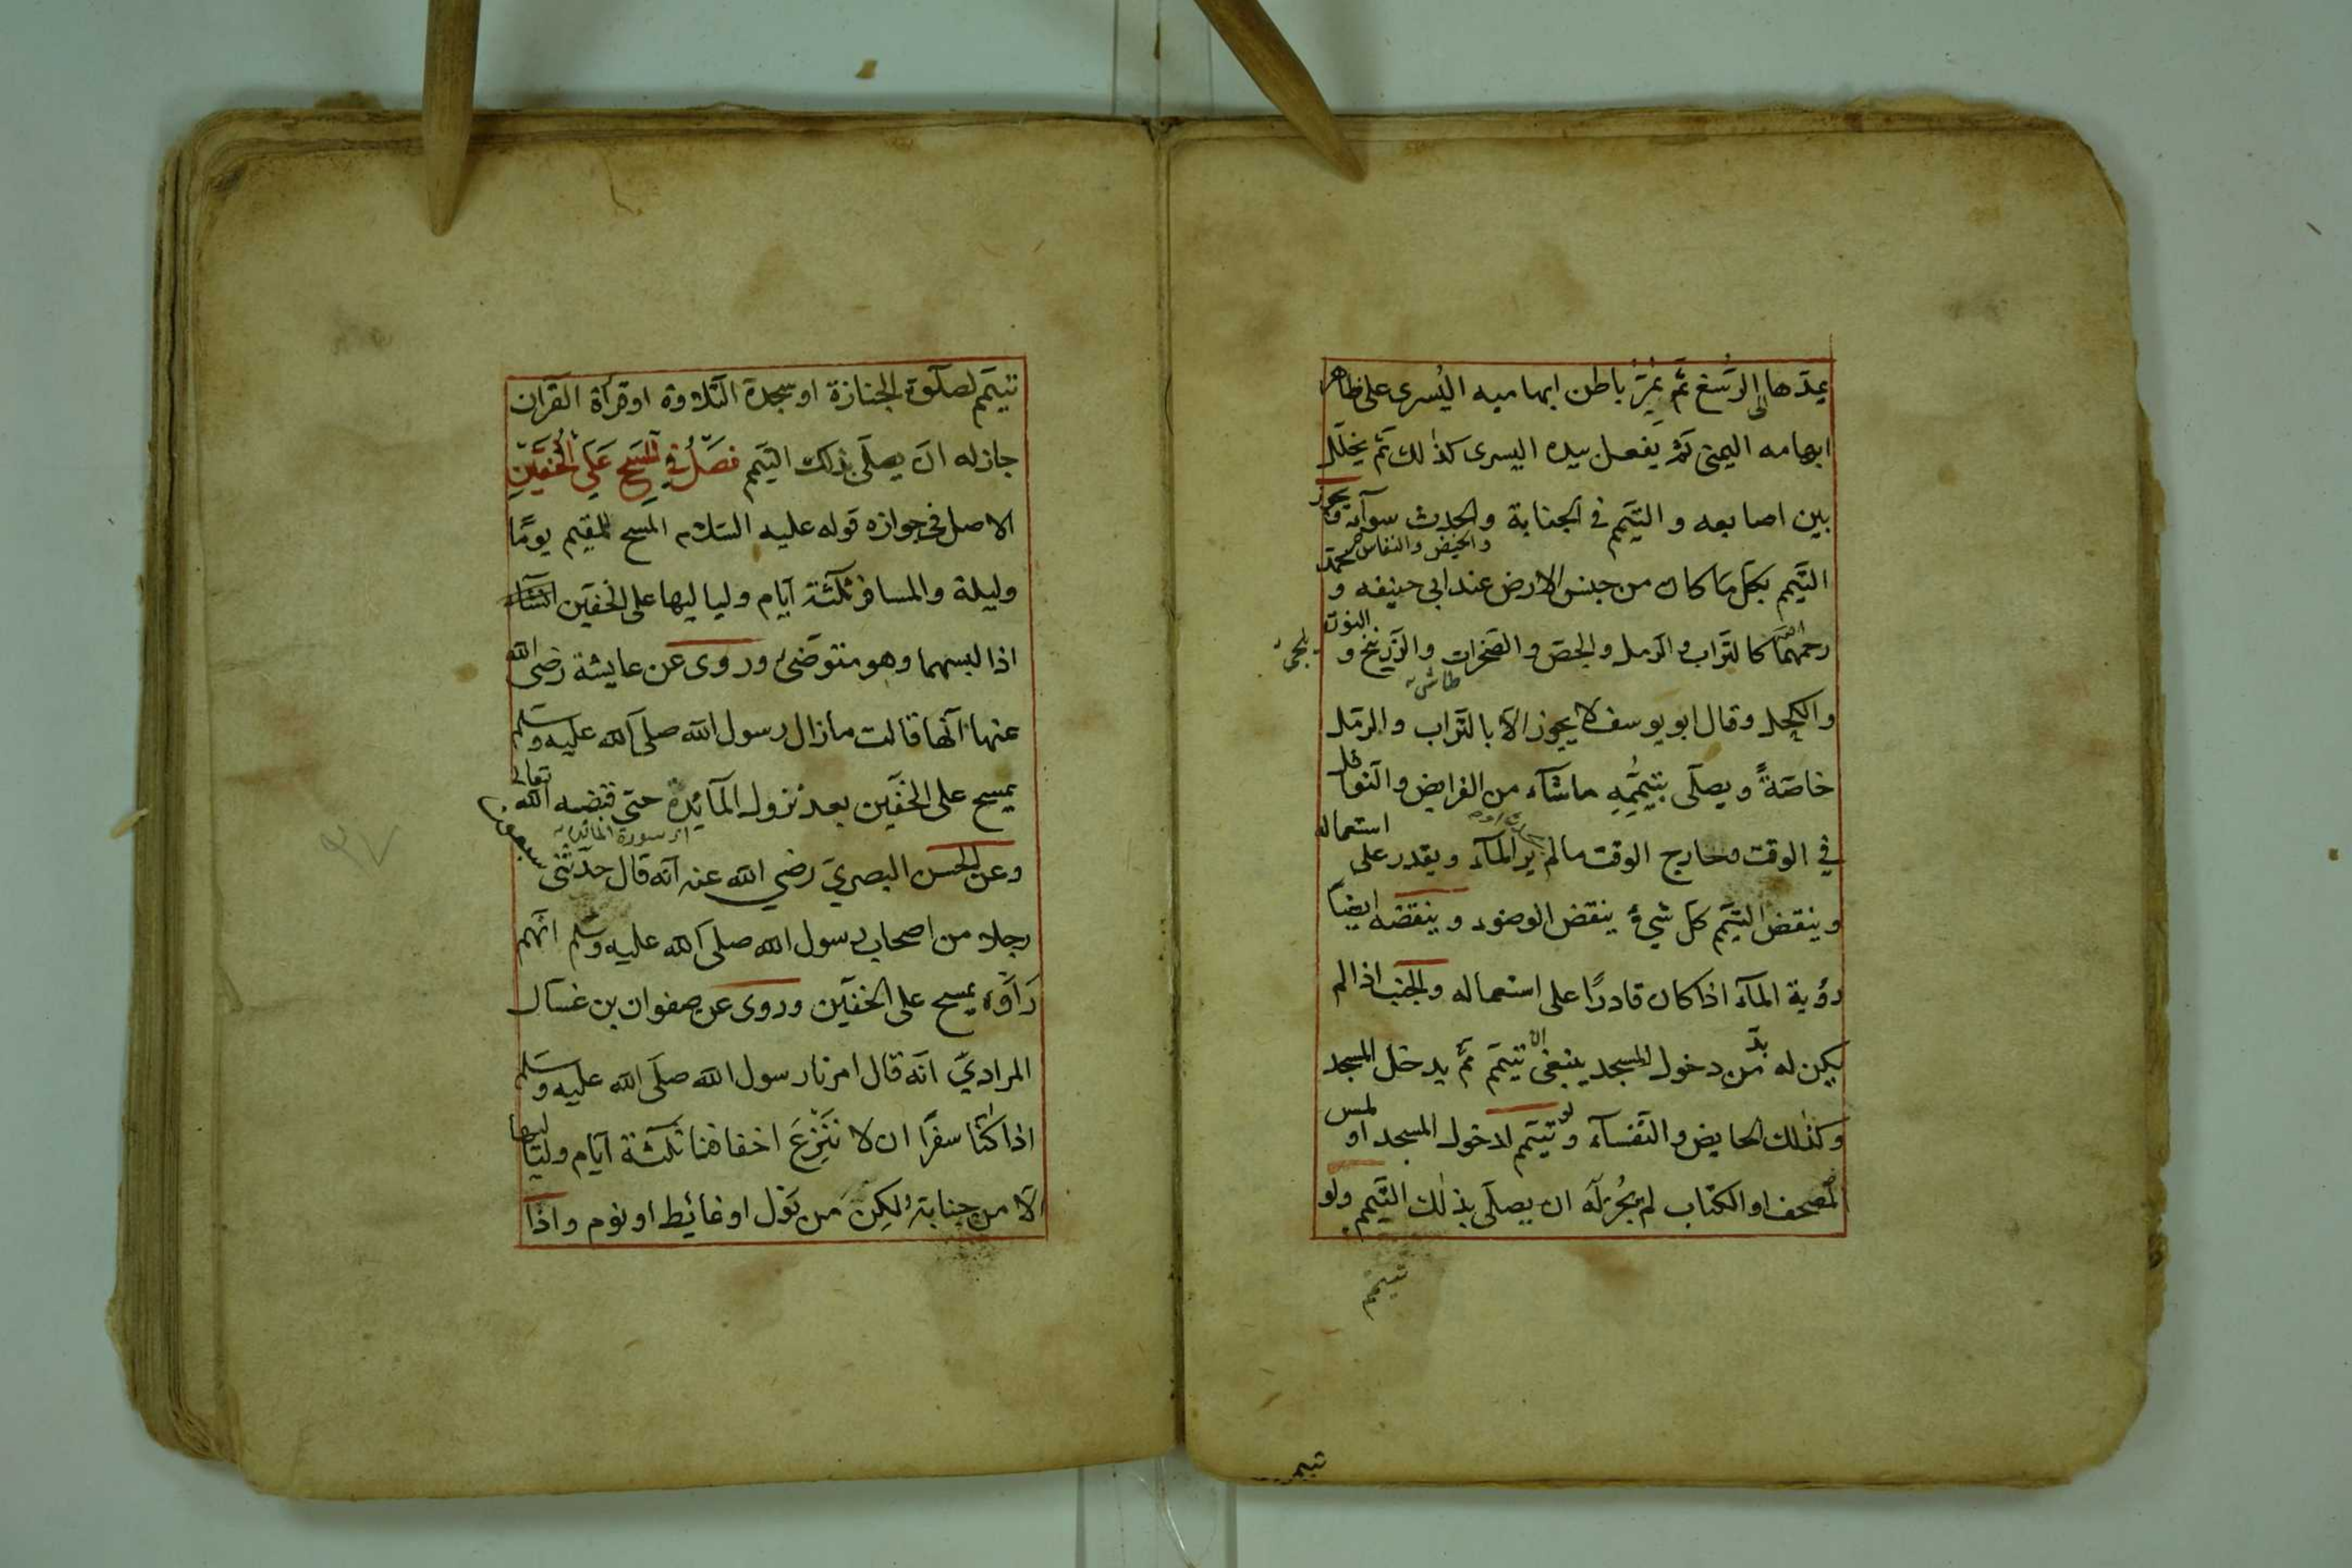 يمدّها الى الرسغ ثمّ يُمِرّ باطن ابهاميه اليُسرى على ظاهر
ابهامه اليمنى ثم يفعل بيده اليسرى كذلك ثمّ يخلّل
بين اصابعه و التيمّم فى الجنابة والحدث سوآء و يجوز
والحيض والنفاس
التيمّم بكلّ ما كان من جنس الارض عند ابى حنيفه و محمّد
رحمهما الله كالتراب و الرمل والجصّ و الصخرات والزرنيخ و النورة
والكحل وقال ابو يوسف لا يجوز الّا بالتراب والرمل
خاصّةً و يصلّى بتيمّمِه ماشآء من الفرايض والنوافل
فى الوقت وخارج الوقت مالم ير المآء ويقدر على استعماله
و ينقض التيمّم كلّ شىء ينقض الوضوء و ينقضه ايضا
رؤية المآء اذا كان قادرًا على استعماله والجنب اذا لم
يكن له بدّ من دخول المسجد ينبغى ان تيمّم ثمّ يدخل المسجد
وكذلك الحايض والنفسآء ولو تيمّم لدخول المسجد او لمس
المصحف او الكتاب لم يجُز له ان يصلّى بذلك التيمم ولو
تيمم
تيمم
تيمّم لصلوة الجنازة او سجدة التلاوة او قرأة القرآن
جاز له ان يصلّى بذلك التيمم فصلٌ فى المسح على الخفّين
الاصل فى جوازه قوله عليه السلام المسح للمقيم يومًا
وليلة والمسافر ثلثة ايّام ولياليها على الخفّين
اذا لبسهما وهو متوضّى وروى عن عايشة رضى الله
عنها انّها قالت مازال رسول الله صلى الله عليه وسلم
يمسح على الخفّين بعد نزول المآئدة حتى قبضه الله تعالى
سورة المائدة
وعن الحسن البصرى رضى الله عنه انّه قال حدّثنى سبعون
رجلا من اصحاب رسول الله صلى الله عليه وسلم انّهم
رَاَوْه يمسح على الخفّين وروى عن صفوان بن غسال
المرادىّ انّه قال امرنا رسول الله صلى الله عليه وسلم
اذا كنّا سفرًا ان لا ننزع اخفافنا ثلثة ايّام ولياليها
الّا من جنابة ولكن من بَوْل او غائط او نوم واذا